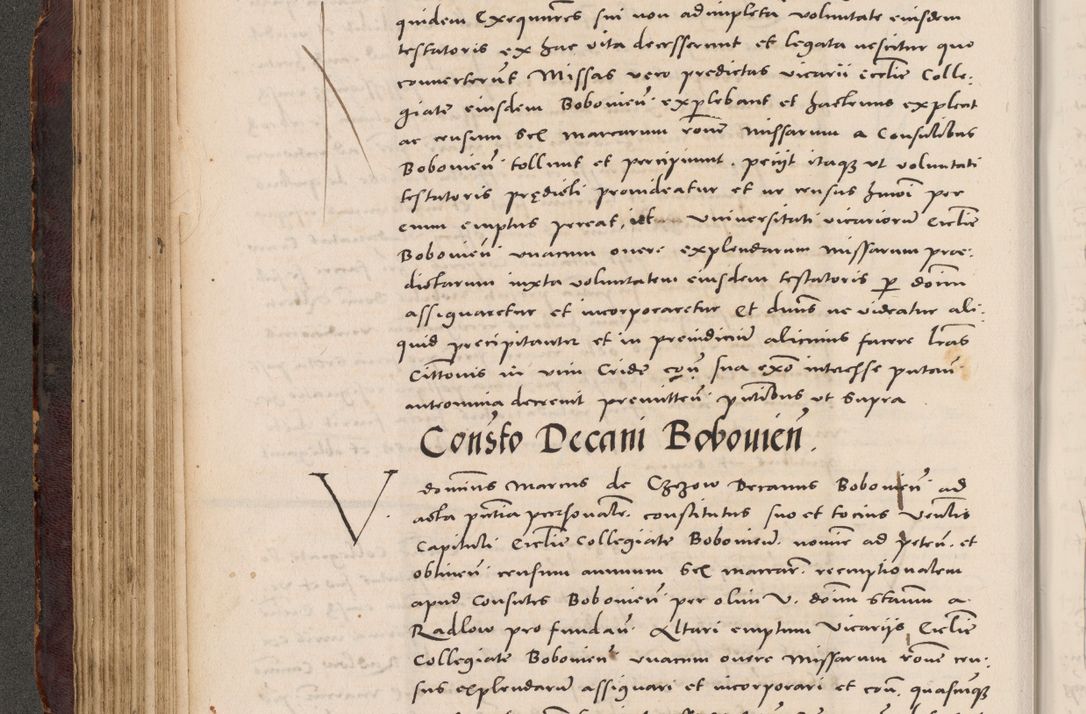 quidem Exequutores sui non adimpleta voluntate eiusdem
testatoris ex hac vita decesserunt et legata nescitur quo
converterunt Missas vero predictas vicarii Ecclie Colle-
giate eiusdem Bobovien explebant et hactenus explent
ac censum sex marcarum rone missarum a Consulibus
Bobovien tollunt et percipiunt. petijt itaqz ut voluntati
testatoris prędicti provideatur et ne census hmoi per
eum emptus pereat, Universitati vicariorum Ecclie
Bobovien unacum onere explendarum missarum prae-
dictarum iuxta voluntatem eiusdem testatoris per donim
assignaretur et incorporaretur Et dnus ne videatur ali-
quid precipitanter et in preiudicium alicuius facere lras
Cittonis in vim Cride con sua exo interesse putan
antequam decernit premitten pntibus ut supra
Consto Decani Bobovien.
V dominus Marcus de Czchow Decanus Bobovien ad
acta pntia personalr. constitutus suo et tocius Ventlis
Capituli Ecclie Collegiate Bobovien. nomine ad peten. et
obtinen censum annuum sex marcar. reemptionalem
apud Consules Bobovien per olim V. donim Stanm a
Radlow pro fundan Altari emptum Vicarijs Ecclie
Collegiate Bobovien unacum onere Missarum rone cen-
sus explendarum assignari et incorporari et con. quascunqz